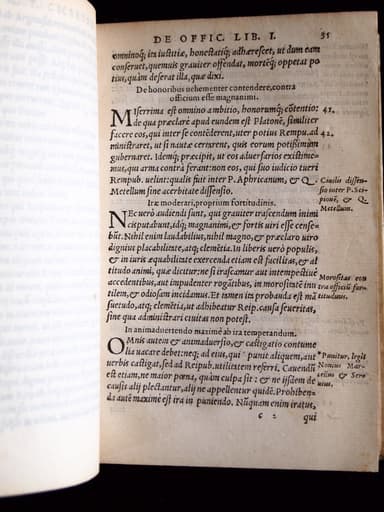 DE OFFIC. LIB. I. 35
omninoq; ita iustitiæ, honestatiq; adhærescet, ut dum eam
conseruet, quemuis grauiter offendat, mortẽq; oppetat po
tius, quàm deserat illa, quæ dixi.
De honoribus uehementer contendere, contra
officium esse magnanimi.
MIserrima est omnino ambitio, honorumq; cõtentio:
de qua præclarè apud eundem est Platonẽ, similiter
facere eos, qui inter se contẽderent, uter potius Rempu. ad
ministraret, ut si nautæ certarent, quis eorum potißimùm
gubernaret. Idemq; præcipit, ut eos aduersarios existime-
mus, qui arma contrà ferant: non eos, qui suo iudicio tueri
Rempub. uelint: qualis fuit inter P. Aphricanum, & Q.
Metellum sine acerbitate dissensio.
41.
42.
Ciuilis dissen
sio inter P. Sci
pionẽ, & Q.
Metellum.
Iræ moderari, proprium fortitudinis.
NEc uerò audiendi sunt, qui grauiter irascendum inimi
cis putabunt, idq; magnanimi, & fortis uiri esse cense-
bũt. Nihil enim laudabilius, nihil magno, & præclaro uiro
dignius placabilitate, atq; clemẽtia. In liberis uerò populis,
& in iuris æquabilitate exercenda etiam est facilitas, & al
titudo animi, quæ dicitur: ne si irascamur aut intempestiuè
accedentibus, aut impudenter rogãtibus, in morositatẽ inu
tilem, & odiosam incidamus. Et tamen ita probanda est mã
suetudo, atq; clemẽtia, ut adhibeatur Reip. causa seueritas,
sine qua administrari ciuitas non potest.
Morositas con
tra officiũ for
titudinis.
In animaduertendo maximè ab ira temperandum.
OMnis autem & animaduersio, & castigatio contume
lia uacare debet: neq; ad eius, qui * punit aliquem, aut
uerbis castigat, sed ad Reipub. utilitatem referri. Cauendũ
est etiam, ne maior pœna, quàm culpa sit: & ne ijsdem de
causis alij plectantur, alij ne appellentur quidẽ. Prohiben-
da autẽ maximè est ira in puniendo. Nũquam enim iratus,
* Punitur, legit
Nonius Mar-
cellus & Ser
uius.
c 2 qui